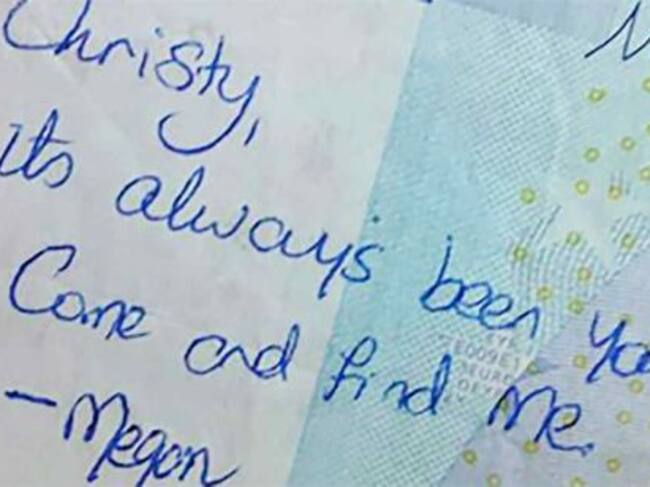 Christy,
its always been yo
Come and find me.
-Megan